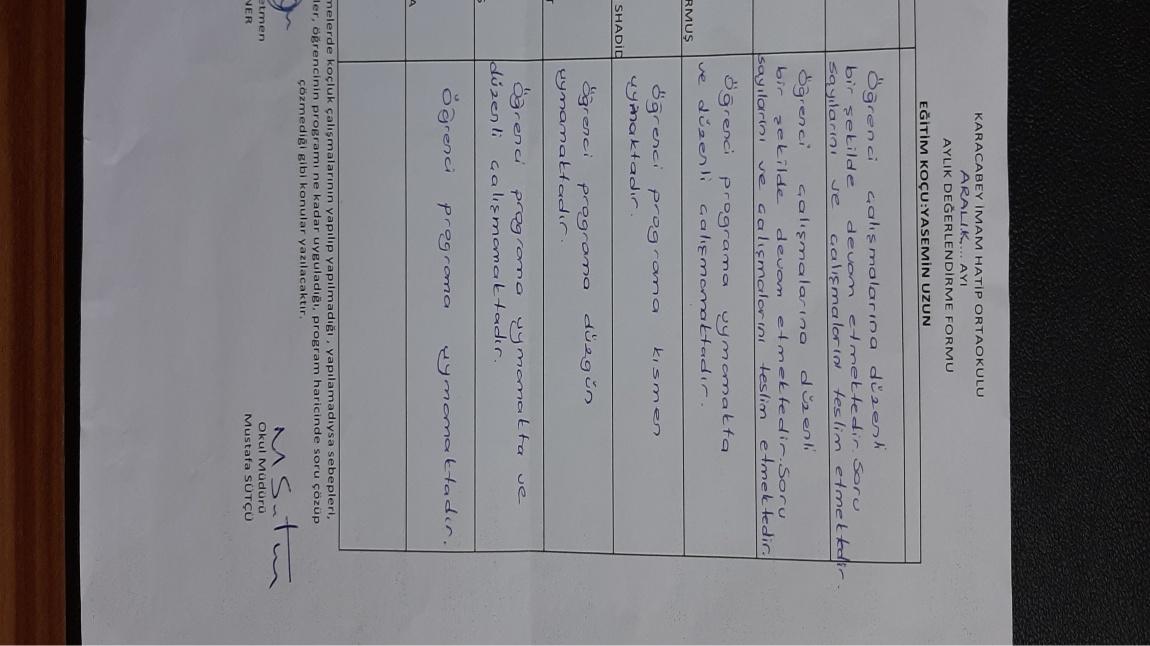 KARACABEY İMAM HATİP ORTAOKULU
ARALIK.... AYI
AYLIK DEĞERLENDİRME FORMU
EĞİTİM KOÇU:YASEMİN UZUN
Öğrenci çalışmalarına düzenli
bir şekilde devam etmektedir. Soru
sayılarını ve çalışmalarını teslim etmektedir.
Öğrenci çalışmalarına düzenli
bir şekilde devam etmektedir. Soru
sayılarını ve çalışmalarını teslim etmektedir.
RMUŞ
Öğrenci programa uymamakta
ve düzenli çalışmamaktadır.
SHADİD
Öğrenci programa kısmen
uymaktadır.
T
Öğrenci programa düzgün
uymamaktadır.
Öğrenci programa uymamakta ve
düzenli çalışmamaktadır.
A
Öğrenci programa uymamaktadır.
melerde koçluk çalışmalarının yapılıp yapılmadığı, yapılamadıysa sebepleri,
ler, öğrencinin programı ne kadar uyguladığı, program haricinde soru çözüp
çözmediği gibi konular yazılacaktır.
etmen
NER
Okul Müdürü
Mustafa SÜTÇÜ